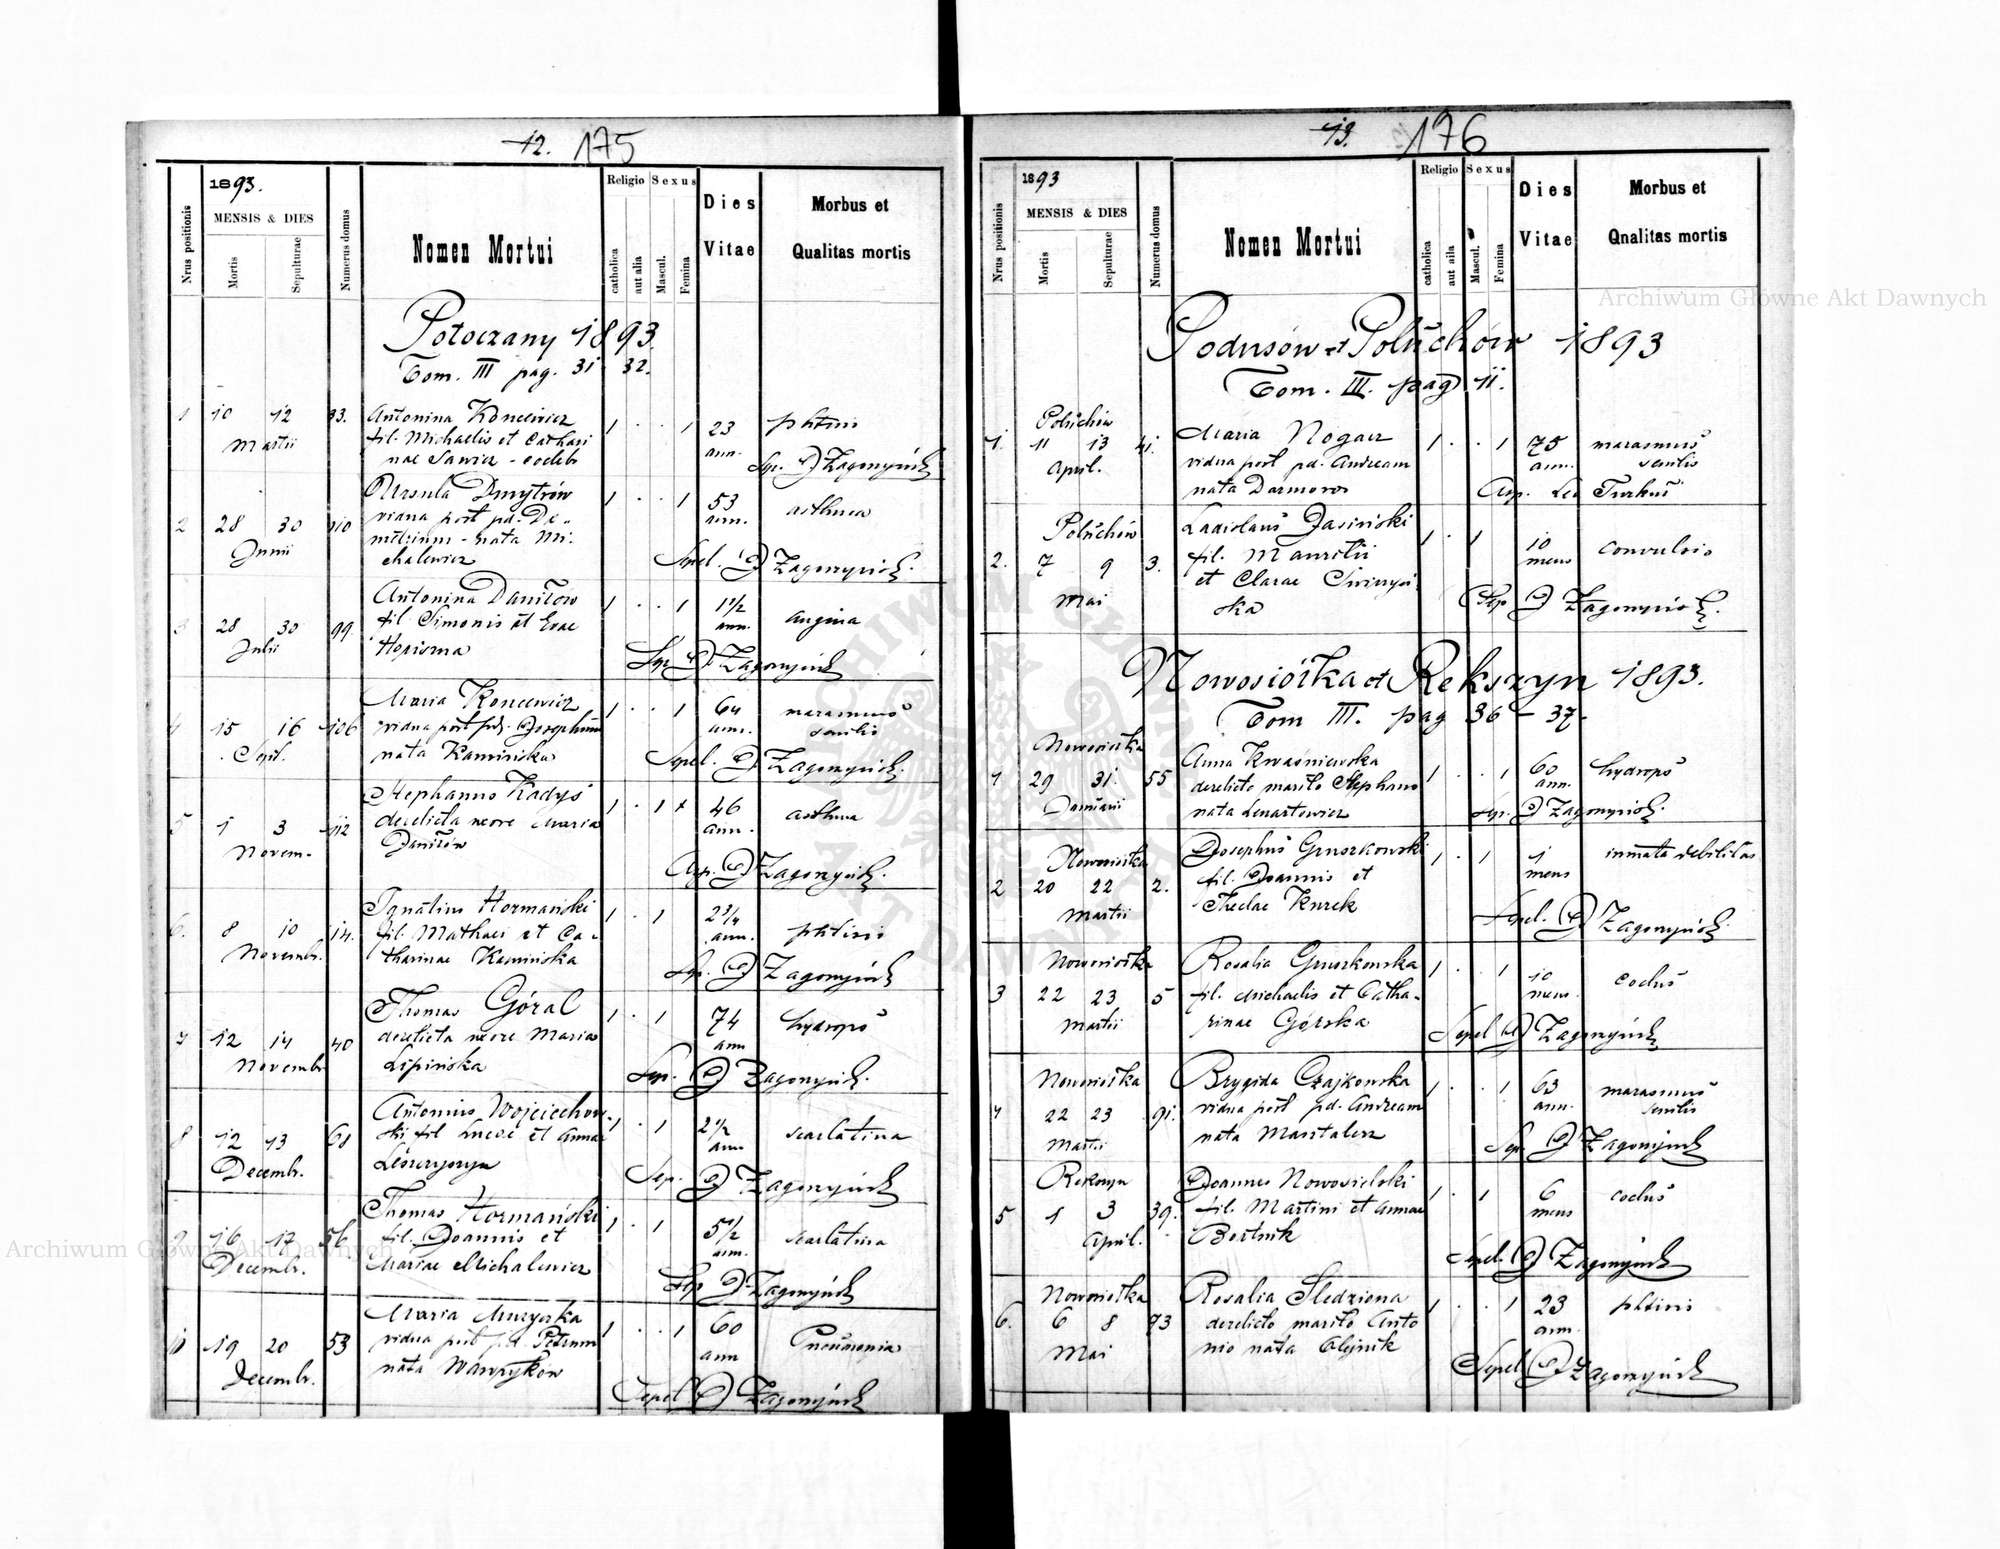 12. 175
1893.
MENSIS & DIES
Nrus positionis
Mortis
Sepulturae
Numerus domus
Nomen Mortui
Religio
Sexus
catholica
aut alia
Mascul.
Femina
Dies Vitae
Morbus et
Qualitas mortis
Potoczany 1893.
Tom. III pag. 31 32.
1 10 12 33. Antonina Koncewicz 1 . . 1 23 phtisis
Martii fil. Michaelis et Cathari ann.
nae Sawicz - coeleb
Sep. J Zagorzyński
2 28 30 110 Ursula Dmytrów 1 . . 1 53 asthma
Junii vidua post pd. De- ann.
metrium - nata Mi-
chalewicz Sepel. J Zagorzyński.
3 28 30 99 Antonina Daniłow 1 . . 1 1 1/2 angina
Julii fil. Simonis et Evae ann.
Sep. J Zagorzyński
4 15 16 106 Maria Koncewicz 1 . . 1 64 marasmus
Sept. vidua post pd. Josephum ann. senilis
nata Kamińska Sepel. J Zagorzyński.
5 1 3 112 Stephanus Kadys 1 . 1 46 asthma
Novem. derelicta uxore Maria ann.
Daniłów
J Zagorzyński.
6. 8 10 14. Ignatius Hormański 1 . 1 2 3/4 phtisis
Novembr. fil. Mathaei et Ca- ann.
tharinae Kamińska Sep. J Zagorzyński
7 12 14 40 Thomas Góral 1 . 1 74 hydrops
Novembr derelicta uxore Maria ann
Lipińska Sep. J Zagorzyński.
8 12 13 68 Antonius Wojciechow- 1 . 1 2 1/2 scarlatina
Decembr. ski fil Lucae et Annae ann
Sep. J Zagorzyński
9 16 17 56 Thomas Hormański 1 . 1 5 1/2 scarlatina
Decembr. fil. Joannis et ann.
Mariae Michalewicz
Sep J Zagorzyński
10 19 20 53 Maria Muzyczka 1 . . 1 60 Pneumonia
Decembr. vidua post pd. Petrum ann
nata Wawryków
Sepel. J Zagorzyński
13. 176
1893
MENSIS & DIES
Nrus positionis
Mortis
Sepulturae
Numerus domus
Nomen Mortui
Religio
Sexus
catholica
aut aila
Mascul.
Femina
Dies Vitae
Morbus et
Qnalitas mortis
Podusów et Połuchów 1893
Tom. III. pag 11.
Połuchów
1. 11 13 41. Maria Nogacz 1 . . 1 75 marasmus
April. vidua post pd. Andream ann. senilis
nata Darmoros Leo Turkuś
Połuchów
2. 7 9 3. Ladislaus Jasiński 1 . 1 10 convulsio
Mai fil. Mauritii mens
et Clarae
ska Sep J Zagorzyński.
Nowosiółka et Rekszyn 1893.
Tom III. pag 36 - 37.
Nowosiółka
1 29 31. 55 Anna Kwaśniewska 1 . . 1 60 hydrops
Januarii derelicto marito Stephano ann.
nata Lenartowicz Sep. J Zagorzyński.
Nowosiółka
2 20 22 2. Josephus Gruszkowski 1 . 1 1 innata debilitas
Martii fil. Joannis et mens
Theclae Kurek
Sepel. J Zagorzyński
Nowosiółka
3 22 23 5 Rosalia Gruszkowska 1 . . 1 10 coclus
Martii fil. Michaelis et Catha- mens.
rinae Górska Sepel J Zagorzyński
Nowosiółka
4 22 23 91. Brygida Czajkowska 1 . . 1 63 marasmus
Martii vidua post pd. Andream ann. senilis
nata Marztalerz Sep. J Zagorzyński
Rekszyn
5 1 3 39. Joannes Nowosielski 1 . 1 6 coclus
April. fil. Martini et Annae mens
Bortnik
Sepel. J Zagorzyński
Nowosiółka
6. 6 8 73 Rosalia Śledziona 1 . . 1 23 phtisis
Mai derelicto marito Anto ann.
nio nata Olejnik
Sepel J Zagorzyński
Archiwum Główne Akt Dawnych
Archiwum Główne Akt Dawnych
ARCHIWUM GŁÓWNE AKT DAWNYCH